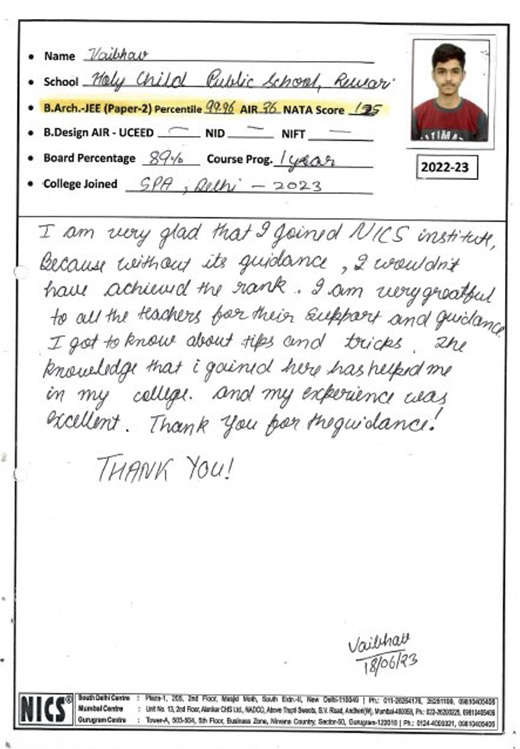 • Name Vaibhav
• School Holy Child Public School, Rewari
• B.Arch.-JEE (Paper-2) Percentile 99.96 AIR 36 NATA Score 125
• B.Design AIR - UCEED — NID — NIFT —
• Board Percentage 89% Course Prog. 1 year
• College Joined SPA, Delhi – 2023
2022-23
I am very glad that I joined NICS institute,
Because without its guidance, I wouldn't
have achieved the rank. I am very greatful
to all the teachers for their support and guidance
I got to know about tips and tricks. The
knowledge that i gained here has helped me
in my college. and my experience was
excellent. Thank you for the guidance!
THANK YOU!
Vaibhav
18/06/23
NICS®
South Delhi Centre : Plaza-1, 205, 2nd Floor, Masjid Moth, South Extn.-II, New Delhi-110049 | Ph.: 011-26264176, 26261199, 09810405405
Mumbai Centre : Unit No. 13, 2nd Floor, Alankar CHS Ltd., NADCO, Above Tropti Sweets, S.V. Road, Andheri(W), Mumbai-400058, Ph.: 022-26200225, 09810405405
Gurugram Centre : Tower-A, 503-504, 5th Floor, Business Zone, Nirvana Country, Sector-50, Gurugram-122018 | Ph.: 0124-4000321, 09810405405